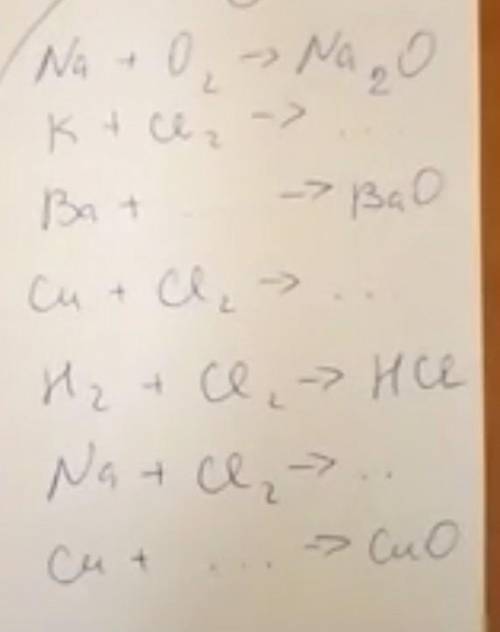 Na + O₂ -> Na₂O
K + Cl₂ -> ...
Ba + ... -> BaO
Cu + Cl₂ -> ...
H₂ + Cl₂ -> HCl
Na + Cl₂ -> ..
Cu + .... -> CuO